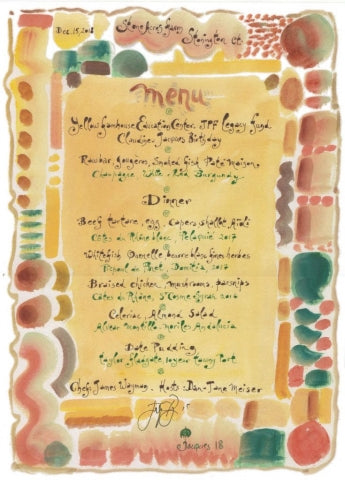 Dec. 15, 2018
Stone Acres Farm
Stonington Ct.
menu
Yellow Farmhouse Education Center. JPF Legacy Fund
Claudine, Jacques Birthday
Raw bar, Gougeres, Smoked fish, Pate maison,
Champagne White - Red Burgundy
Dinner
Beef tartare, egg, Capers shallot, Aioli
Côtes du Rhône blanc, 2017
Whitefish Quenelle beurre blanc, fines herbes
Picpoul de Pinet, 2017
Braised chicken, mushrooms, parsnips
Côtes du Rhône, St Cosme 2016
Celeriac Almond Salad
Alvear montilla-moriles Andalucia
Date Pudding
Taylor Fladgate 10 year Tawny Port
Chef: James Wayman - Hosts: Dan - Jane Meiser
Jacques 18